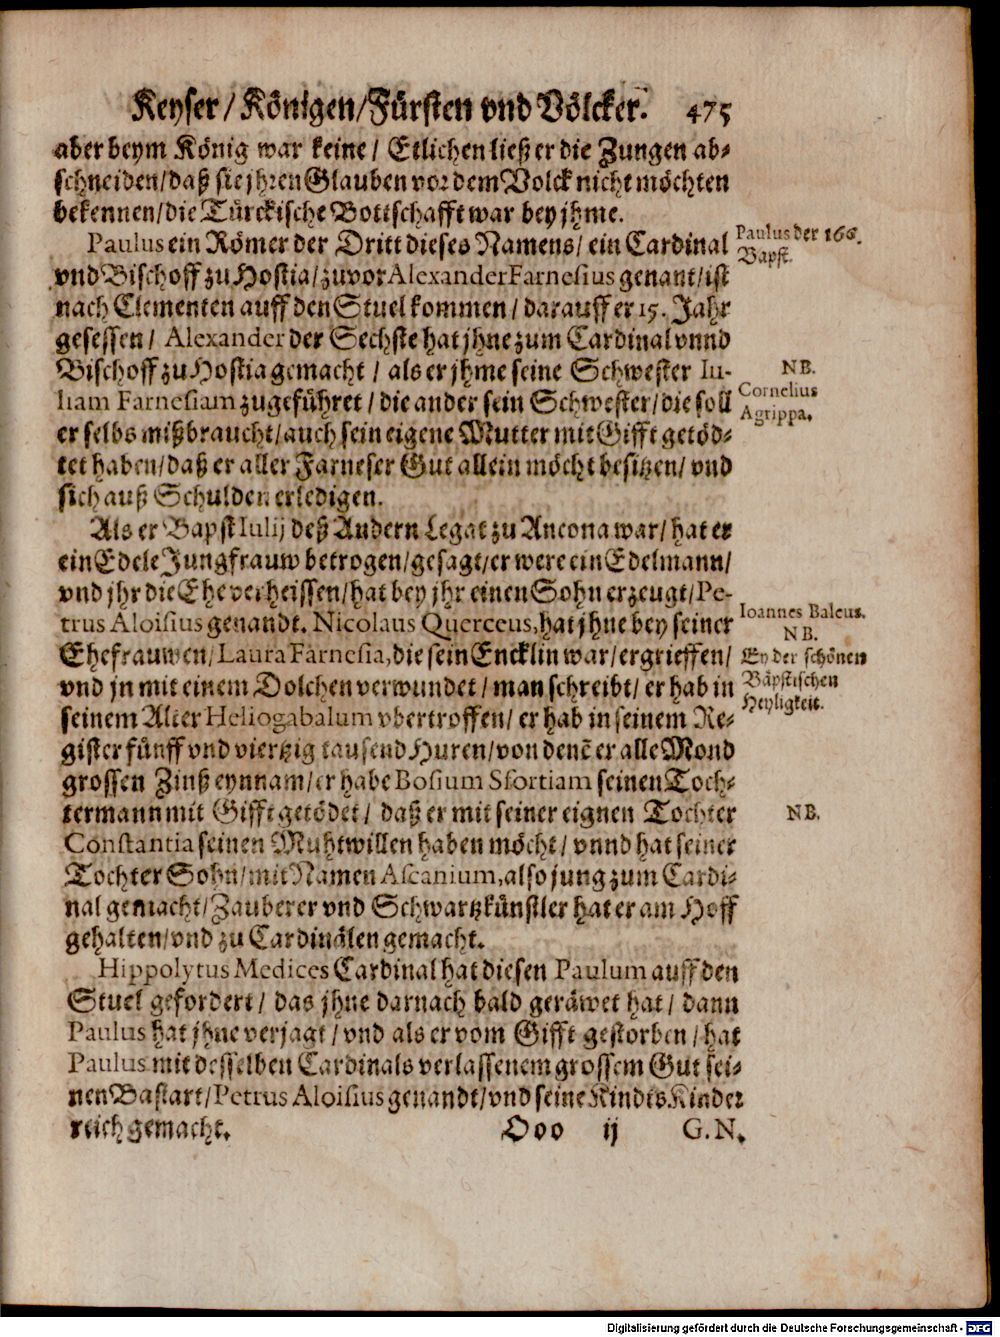 Keyser / Königen / Fürsten vnd Völcker. 475
aber beym König war keine / Etlichen ließ er die Zungen ab-
schneiden / daß sie jhren Glauben vor dem Volck nicht möchten
bekennen / die Türckische Bottschafft war bey jhme.
Paulus ein Römer der Dritt dieses Namens / ein Cardinal
vnd Bischoff zu Hostia / zuvor Alexander Farnesius genant / ist
nach Clementen auff den Stuel kommen / darauff er 15. Jahr
gesessen / Alexander der Sechste hat jhne zum Cardinal vnnd
Bischoff zu Hostia gemacht / als er jhme seine Schwester Iu-
liam Farnesiam zugeführet / die ander sein Schwester / die soll
er selbs mißbraucht / auch sein eigene Mutter mit Gifft getöd-
tet haben / daß er aller Farneser Gut allein möcht besitzen / vnd
sich auß Schulden erledigen.
Paulus der 166.
Bapst.
NB.
Cornelius
Agrippa.
Als er Bapst Iulij deß Andern Legat zu Ancona war / hat er
ein Edele Jungfrauw betrogen / gesagt / er were ein Edelmann /
vnd jhr die Ehe verheissen / hat bey jhr einen Sohn erzeugt / Pe-
trus Aloisius genandt. Nicolaus Querceus, hat jhne bey seiner
Ehefrauwen / Laura Farnesia, die sein Encklin war / ergrieffen /
vnd jn mit einem Dolchen verwundet / man schreibt / er hab in
seinem Alter Heliogabalum vbertroffen / er hab in seinem Re-
gister fünff vnd viertzig tausend Huren / von denẽ er alle Mond
grossen Zinß eynnam / er habe Bosium Sfortiam seinen Toch-
termann mit Gifft getödet / daß er mit seiner eignen Tochter
Constantia seinen Muhtwillen haben möcht / vnnd hat seiner
Tochter Sohn / mit Namen Ascanium, also jung zum Cardi-
nal gemacht / Zauberer vnd Schwartzkünstler hat er am Hoff
gehalten / vnd zu Cardinälen gemacht.
Ioannes Baleus.
NB.
Ey der schönen
Bäpstischen
Heyligkeit.
NB.
Hippolytus Medices Cardinal hat diesen Paulum auff den
Stuel gefordert / das jhne darnach bald geräwet hat / dann
Paulus hat jhne verjagt / vnd als er vom Gifft gestorben / hat
Paulus mit desselben Cardinals verlassenem grossem Gut sei-
nen Bastart / Petrus Aloisius genandt / vnd seine Kindts Kinder
reich gemacht.
Ooo ij G. N.
Digitalisierung gefördert durch die Deutsche Forschungsgemeinschaft - DFG